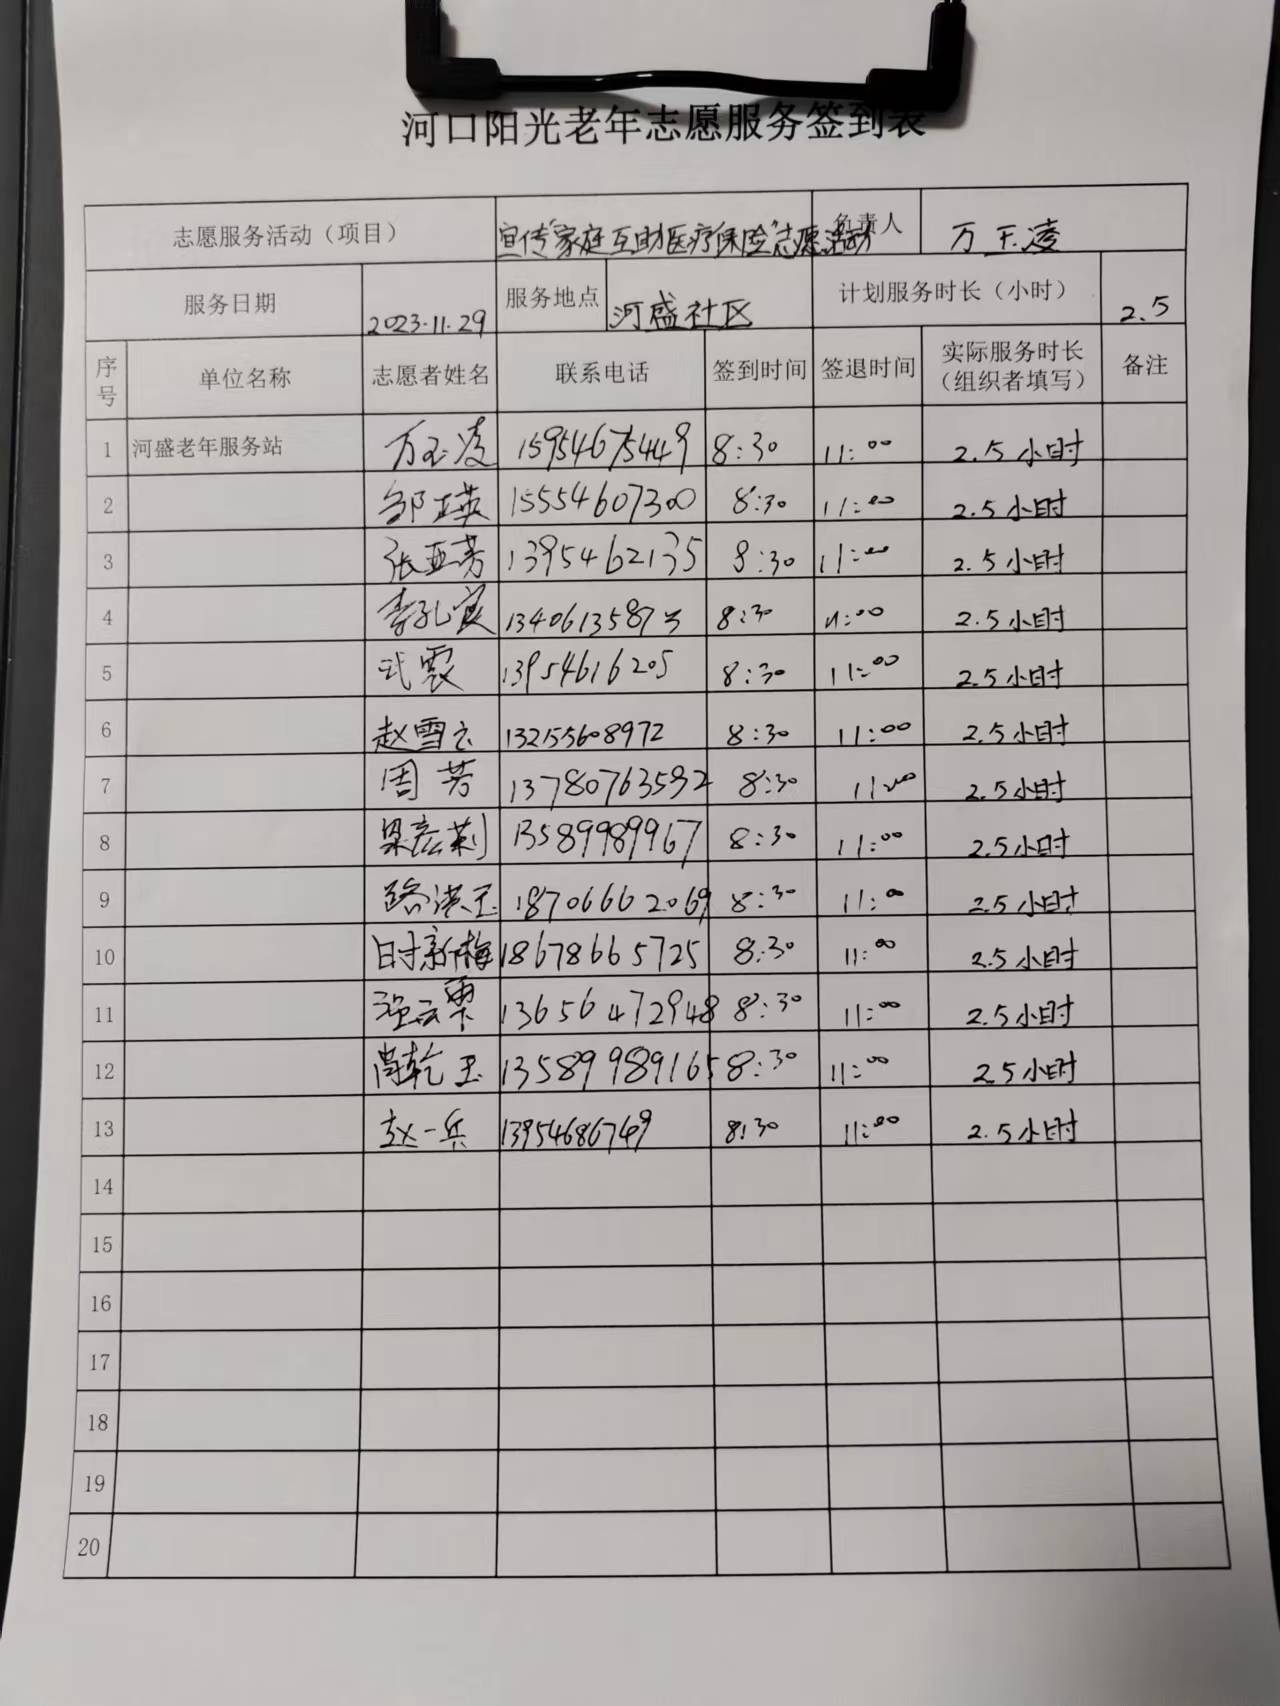 河口阳光老年志愿服务签到表
志愿服务活动（项目） 宣传"家庭互助医疗保险"志愿活动 负责人 万玉凌
服务日期 2023.11.29 服务地点 河盛社区 计划服务时长（小时） 2.5
序号 单位名称 志愿者姓名 联系电话 签到时间 签退时间 实际服务时长（组织者填写） 备注
1 河盛老年服务站 万玉凌 15954675449 8:30 11:00 2.5小时
2 邹英 15554607300 8:30 11:00 2.5小时
3 张亚芳 1395462135 8:30 11:00 2.5小时
4 李孔 8:30 11:00 2.5小时
5 武霞 13954616205 8:30 11:00 2.5小时
6 赵雪 132155608972 8:30 11:00 2.5小时
7 周芳 13780763592 8:30 11:00 2.5小时
8 梁宏莉 13589989967 8:30 11:00 2.5小时
9 路洪玉 18706662069 8:30 11:00 2.5小时
10 时新梅 18678665725 8:30 11:00 2.5小时
11 13656472948 8:30 11:00 2.5小时
12 尚乾玉 13589989165 8:30 11:00 2.5小时
13 赵一兵 13954686749 8:30 11:00 2.5小时
14
15
16
17
18
19
20